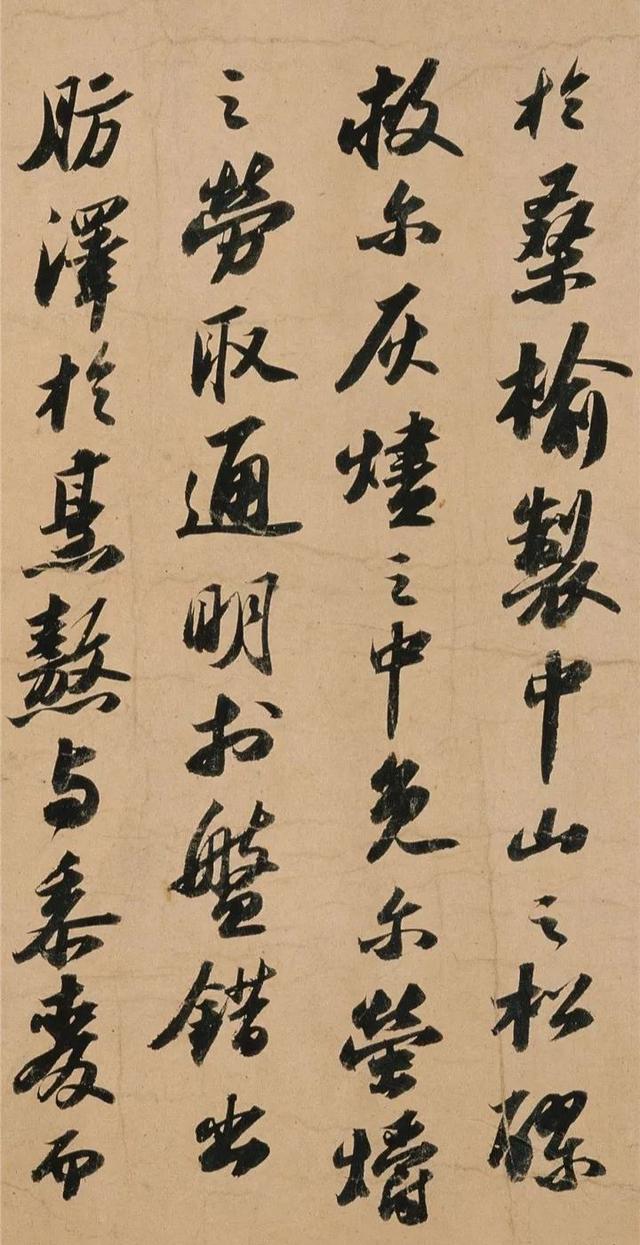 於桑榆製中山之松醪
救尔灰燼之中免尔螢爝
之勞取通明於盤錯出
肪澤於烹熬与黍麦而